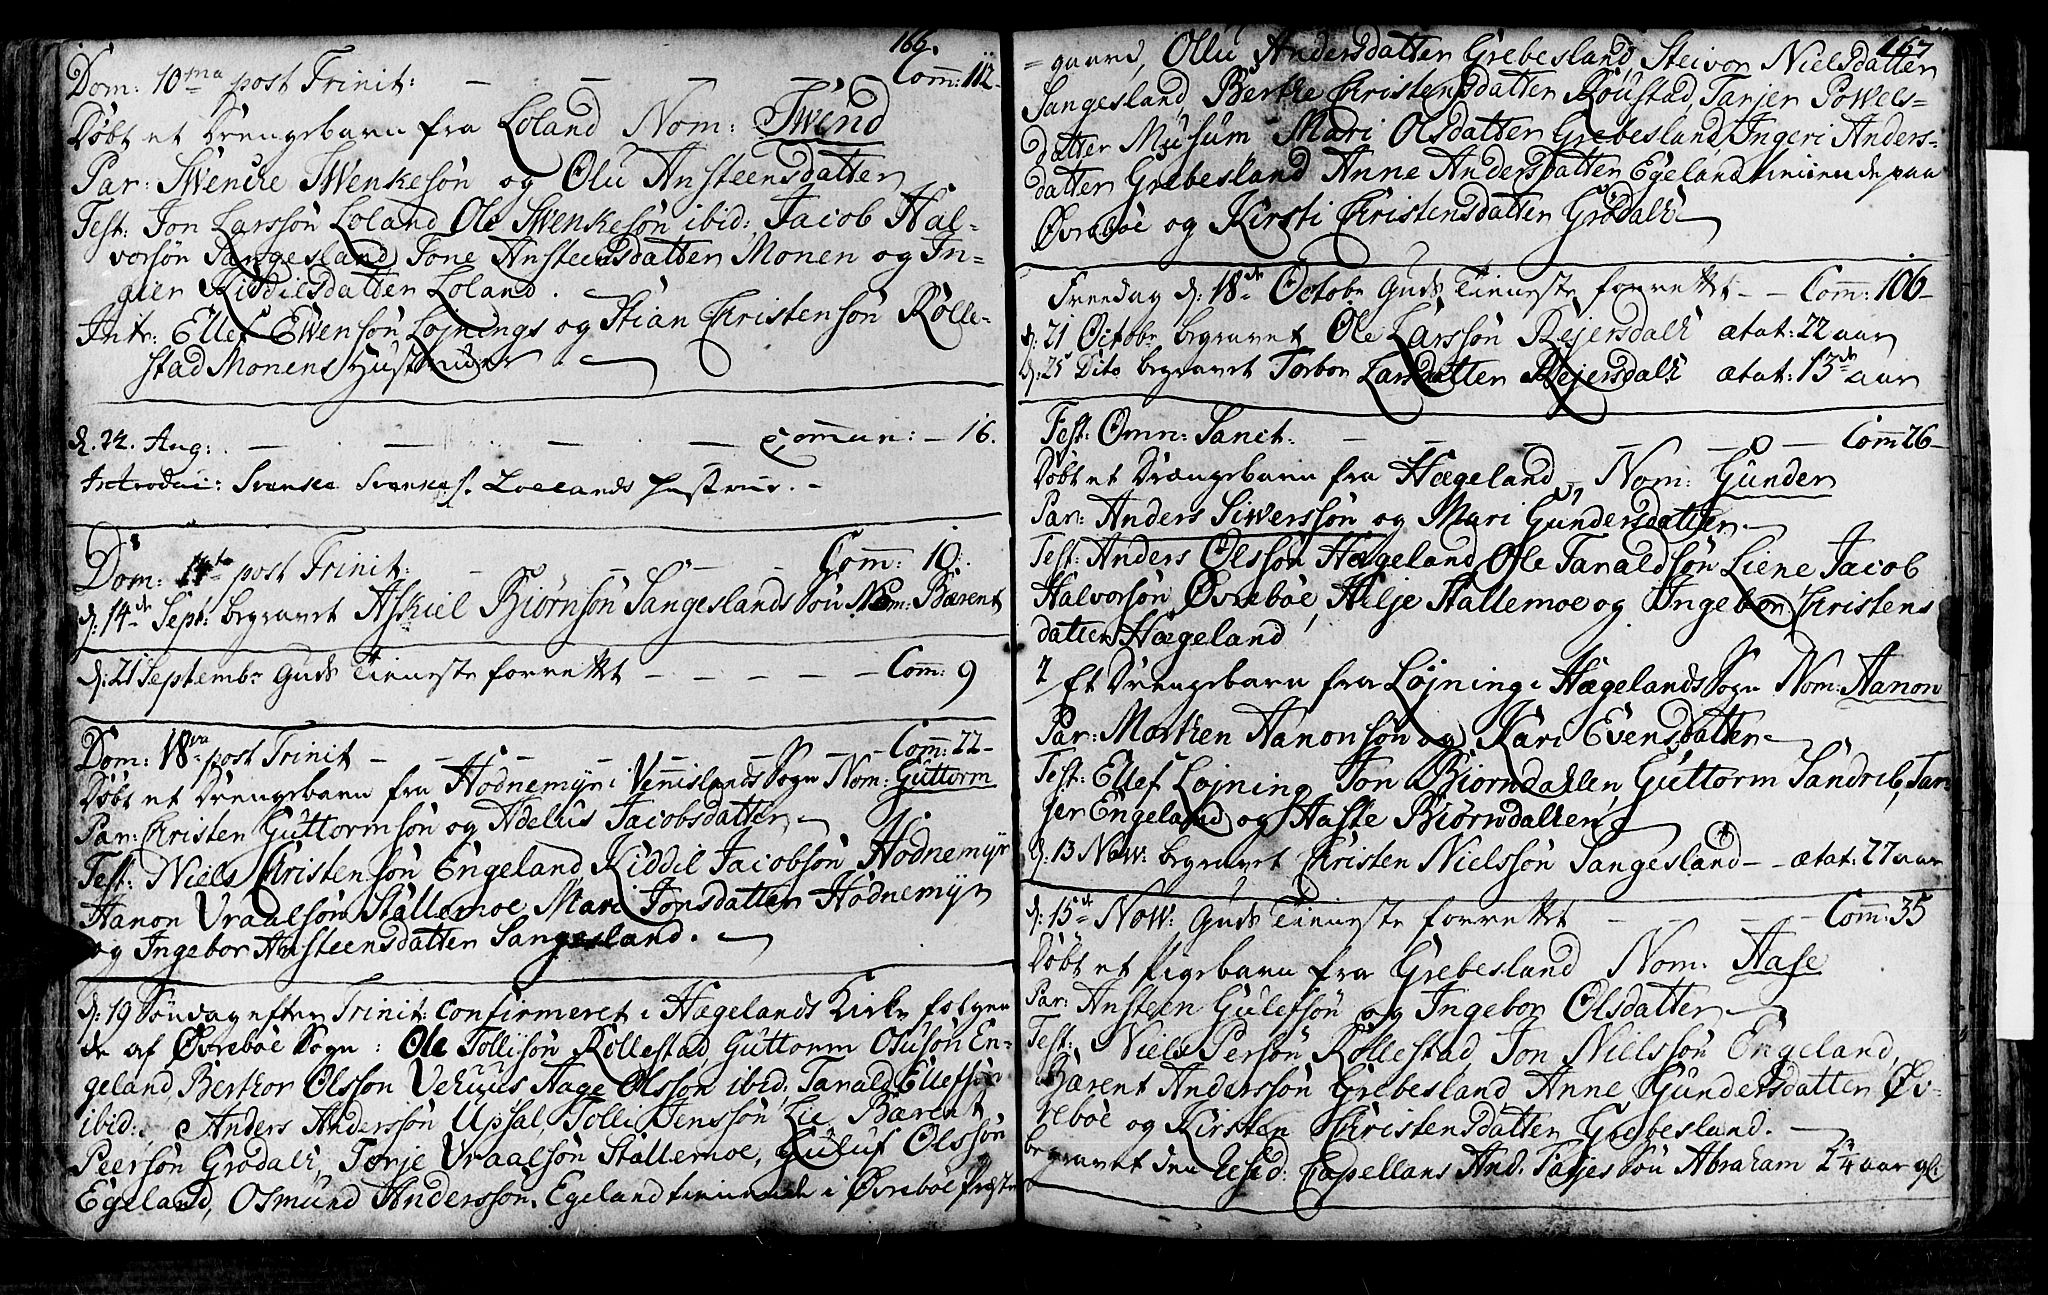 166.
Dom: 10ma post Trinit: — — — — Com̄: 112-
Døbt et Drengebarn fra Loland Nom: Swend
Par: Swencke Swenkesøn og Olu Ansteensdatter
Test: Jon Larssøn Loland, Ole Swenkesøn ibid; Jacob Hal-
vorsøn Sangesland, Tone Ansteensdatter Monen og In-
gier Kiddilsdatter Loland.
Intr: Ellef Ewensøn Løjnings og Stian Christensøn Rølle-
stad Monens Hustruer
d. 22. Aug: — — — — — Commun: — 16.
Introduc: Svenke Svenkes. Loelands Hustrue. -
Dom: 14te post Trinit: — — — — Com̄: 10.
d: 14de Sept: begravet Askiel Biørnsøn Sangeslands Søn Nom: Bærent
d: 21 Septembr Guds Tieneste forrettet — — — — — Com̄: 9
Dom: 18va post Trinit — — — — — Com̄: 22-
Døbt et Drengebarn fra Hodnemyr i Vennislands Sogn Nom: Guttorm
Par: Christen Guttormsøn og Adelus Jacobsdatter
Test: Niels Christensøn Engeland, Kiddil Jacobsøn Hodnemyr
Hanon Vraalsøn Stallemoe, Mari Jonsdatter Hodnemyr
og Ingebor Ansteensdatter Sangesland.
d: 19 Søndag efter Trinit: Confirmeret i Hægelands Kirke følgen
de af Øvrebøe Sogn: Ole Tollisøn Røllestad, Guttorm Osuson En-
geland, Berthor Olsson Vehuus, Aage Olsson ibid; Tarald Ellefsøn
ibid: Anders Anderssøn Upsal, Tolli Jenssøn Lie, Bærent
Peersøn Grødalk, Torje Vraalsøn Stallemoe, Guluf Olssøn
Egeland, Osmund Andersson Egeland tienende i Øvrebøe Præste
167
= gaard, Ollu Andersdatter Grebesland, Steivor Nielsdatter
Sangesland, Berthe Christensdatter Roustad, Tarjer Powels-
datter Musum, Mari Olsdatter Grebesland, Ingeri Anders-
datter Grebesland, Anne Andersdatter Egeland tienende paa
Øvrebøe og Kirsti Christensdatter Grødalk
Freedag d: 18de Octobr Guds Tieneste forrettet - - Com̄: 106-
d: 21 Octobr begravet Ole Larssøn Rejersdalk ætat: 22 aar
d: 25 Dito begravet Torbor Larsdatter Rejersdalk ætat: 13de aar
Fest: Omn: Sanct: — — — — — Com̄ 26-
Døbt et Drængebarn fra Hægeland - Nom: Gunder
Par: Anders Siwerssøn og Mari Gundersdatter
Test: Anders Olssøn Hægeland, Ole Taraldsøn Liene, Jacob
Halvorsøn Øvrebøe, Hilje Stallemoe og Ingebor Christens
datter Hægeland
2 Et Drengebarn fra Løjning i Hægelands Sogn Nom: Hanon
Par: Morthen Hanonsøn og Kari Evensdatter
Test: Ellef Løjning, Jon Biorndahlen, Guttorm Sandrib, Tar-
jer Engeland og Aaste Biørndalhen
d: 13 Now: begravet Christen Nielssøn Sangesland - - ætat: 27 aar
d: 15de Now: Guds Tieneste forrettet — — - Com̄: 35
Døbt et Pigebarn fra Grebesland Nom: Aase
Par: Ansteen Gulefsøn og Ingebor Olsdatter
Test: Niels Persøn Røllestad, Jon Nielssøn Engeland,
Bærent Anderssøn Grebesland, Anne Gundersdatter Øv-
rebøe og Kirsten Christensdatter Grebesland.
begravet den Resid: Capellans And. Søn Abraham 2 1/4 aar gl